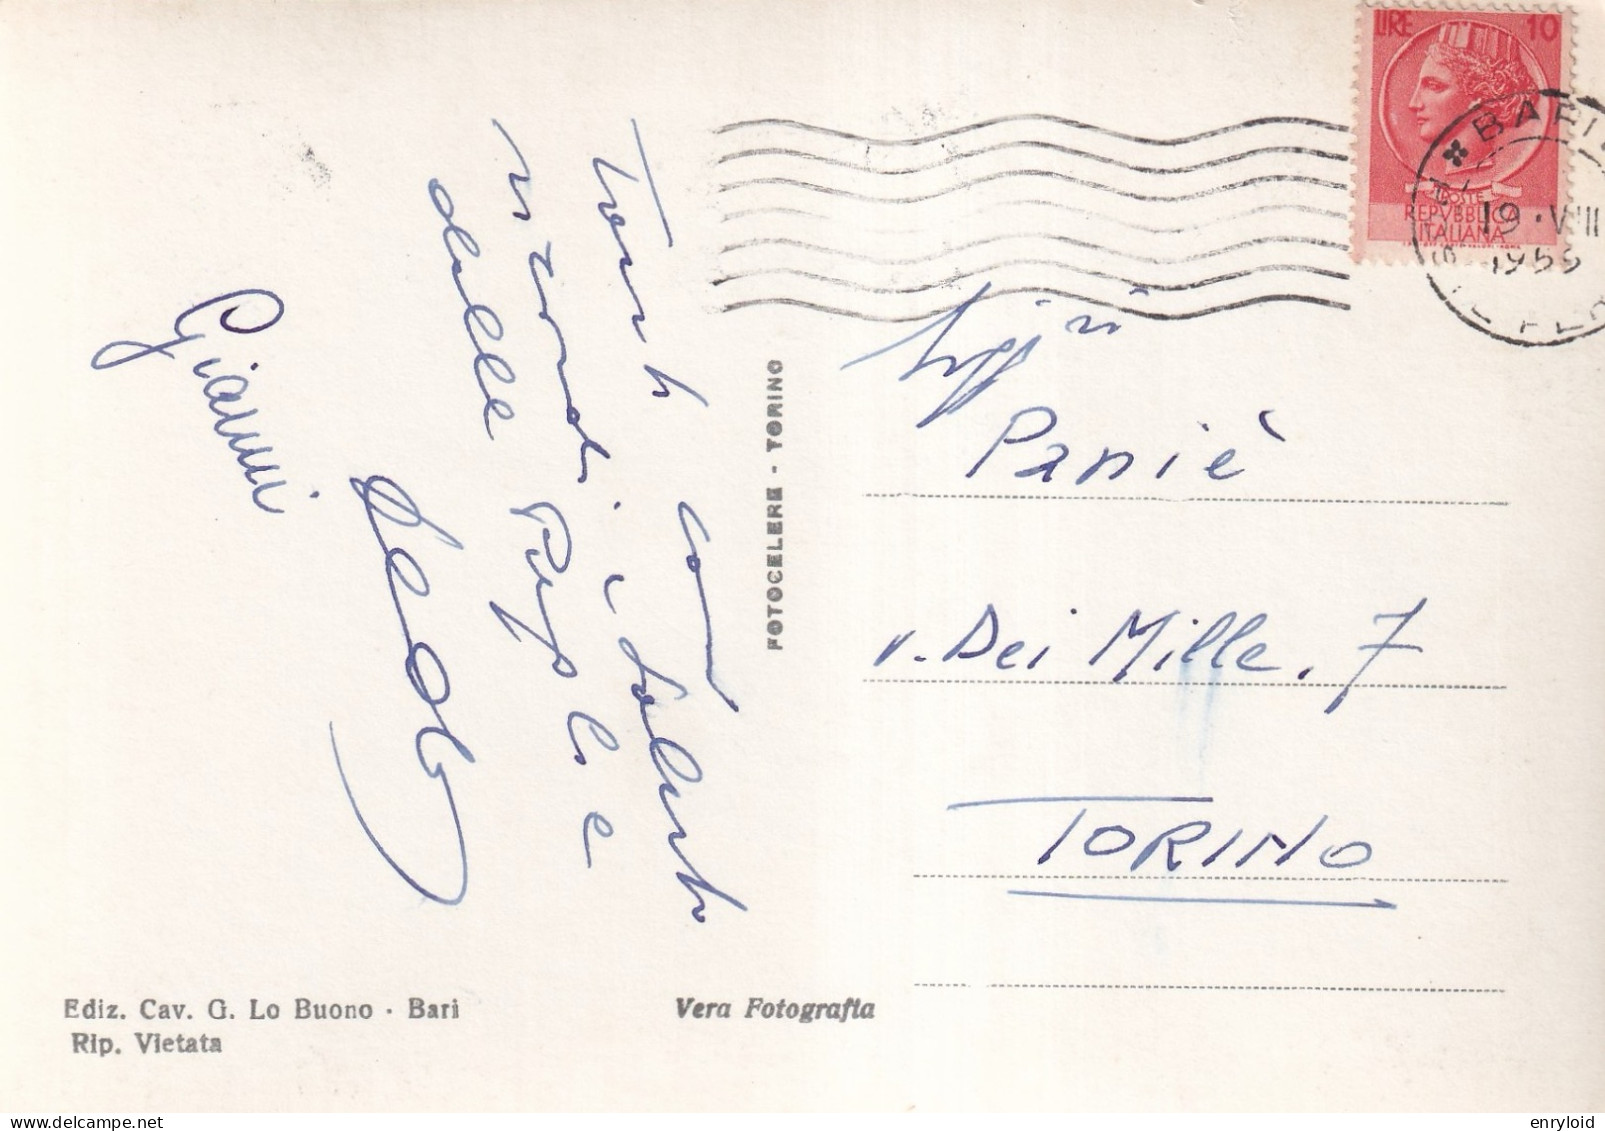 Tanti cari
ricordi e saluti
dalle Puglie
Gianni
FOTOCELERE - TORINO
LIRE 10
POSTE
REPVBBLICA
ITALIANA
BARI
19 · VIII
1955
Paniè
v. Dei Mille, 7
TORINO
Ediz. Cav. G. Lo Buono - Bari
Rip. Vietata
Vera Fotografia
enryloid
delcampe.net